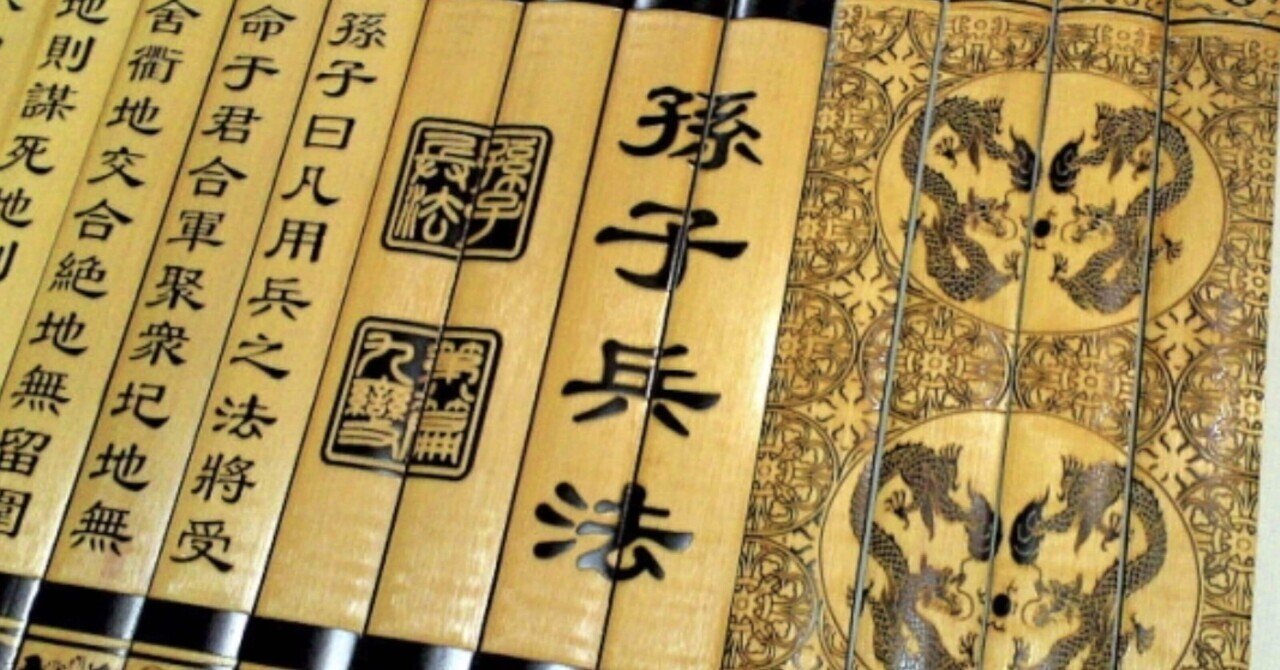 孫子兵法
孫子
兵法
第八篇
九變
孫子曰凡用兵之法將受
命于君合軍聚衆圮地無
舍衢地交合絶地無留圍
地則謀死地則